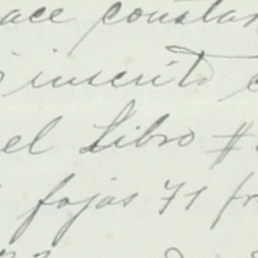 ace constar
inscrito
el Libro #
fojas 71 fr